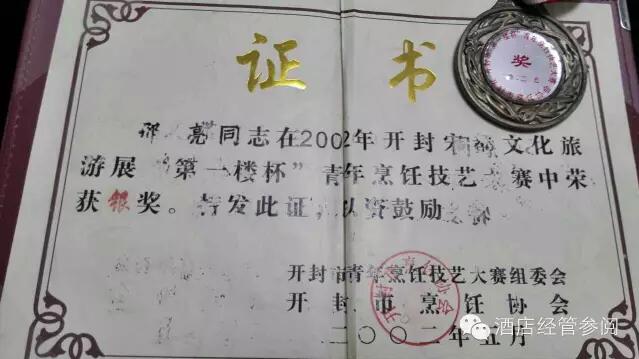 证书
奖
亮同志在2002年开封宋 文化旅
游展“第一楼杯”青年烹饪技艺大赛中荣
获银奖。特发此证，以资鼓励
开封市青年烹饪技艺大赛组委会
开封市烹饪协会
二〇〇二年五月
酒店经管参阅